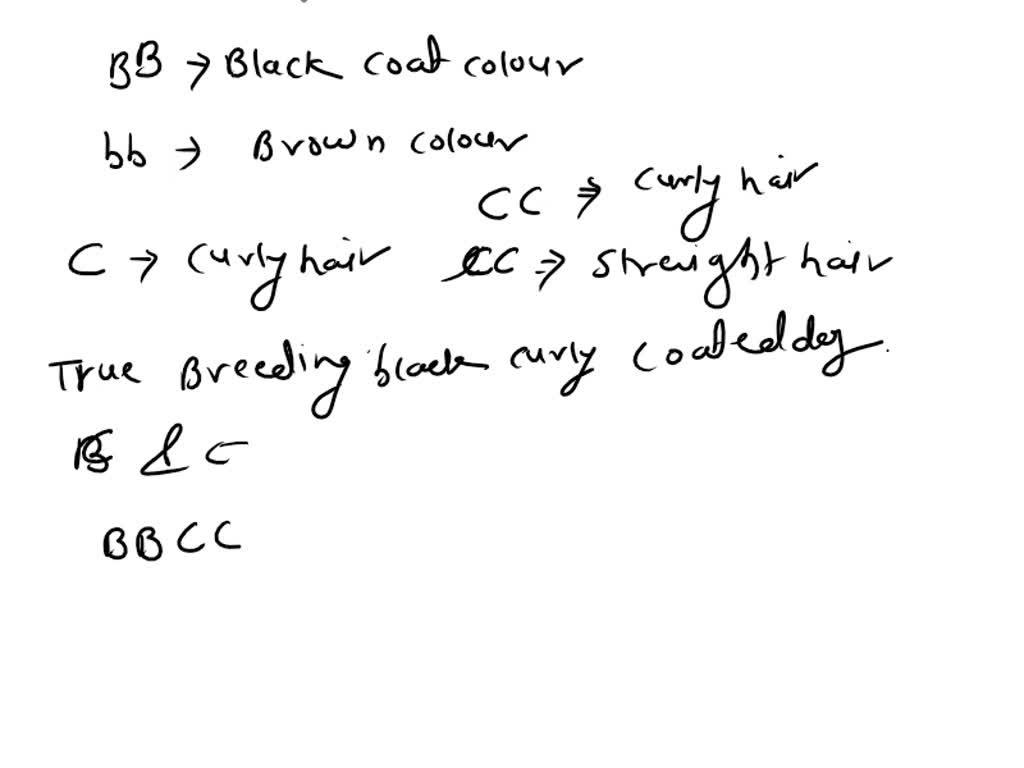 BB → Black coat colour
bb → Brown colour
CC ⇒ curly hair
C → curly hair cc ⇒ streight hair
True Breeding black curly coated dog.
B & C
BBCC